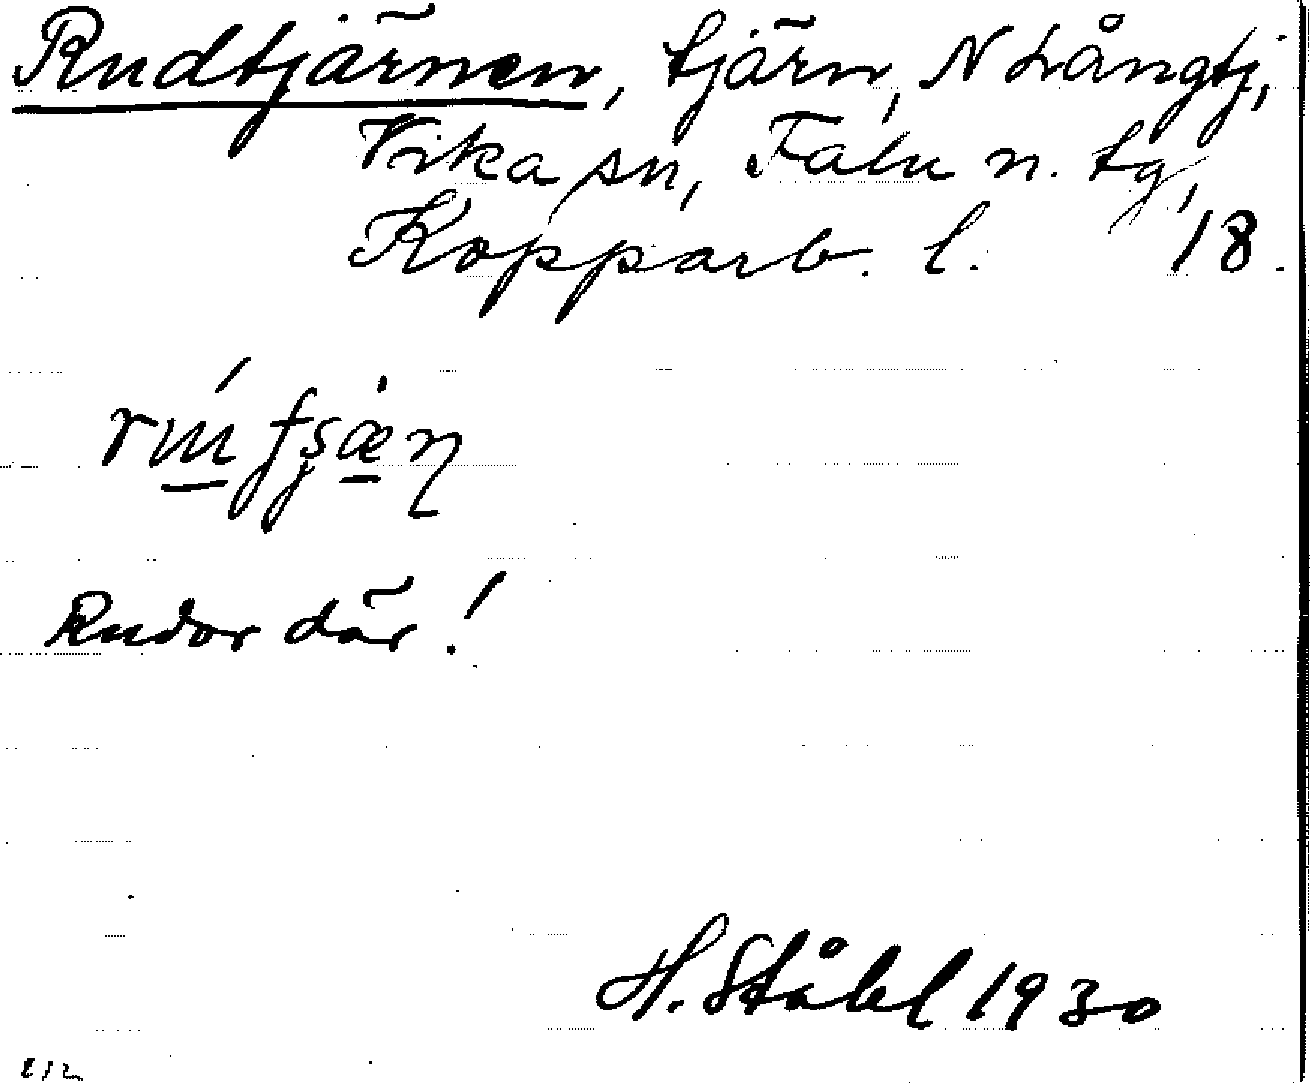 Rudtjärnen, tjärn, N Långtj,
Vika sn, Falu n. tg,
Kopparb. l. 18.
Rudor där!
H. Ståhl 1930